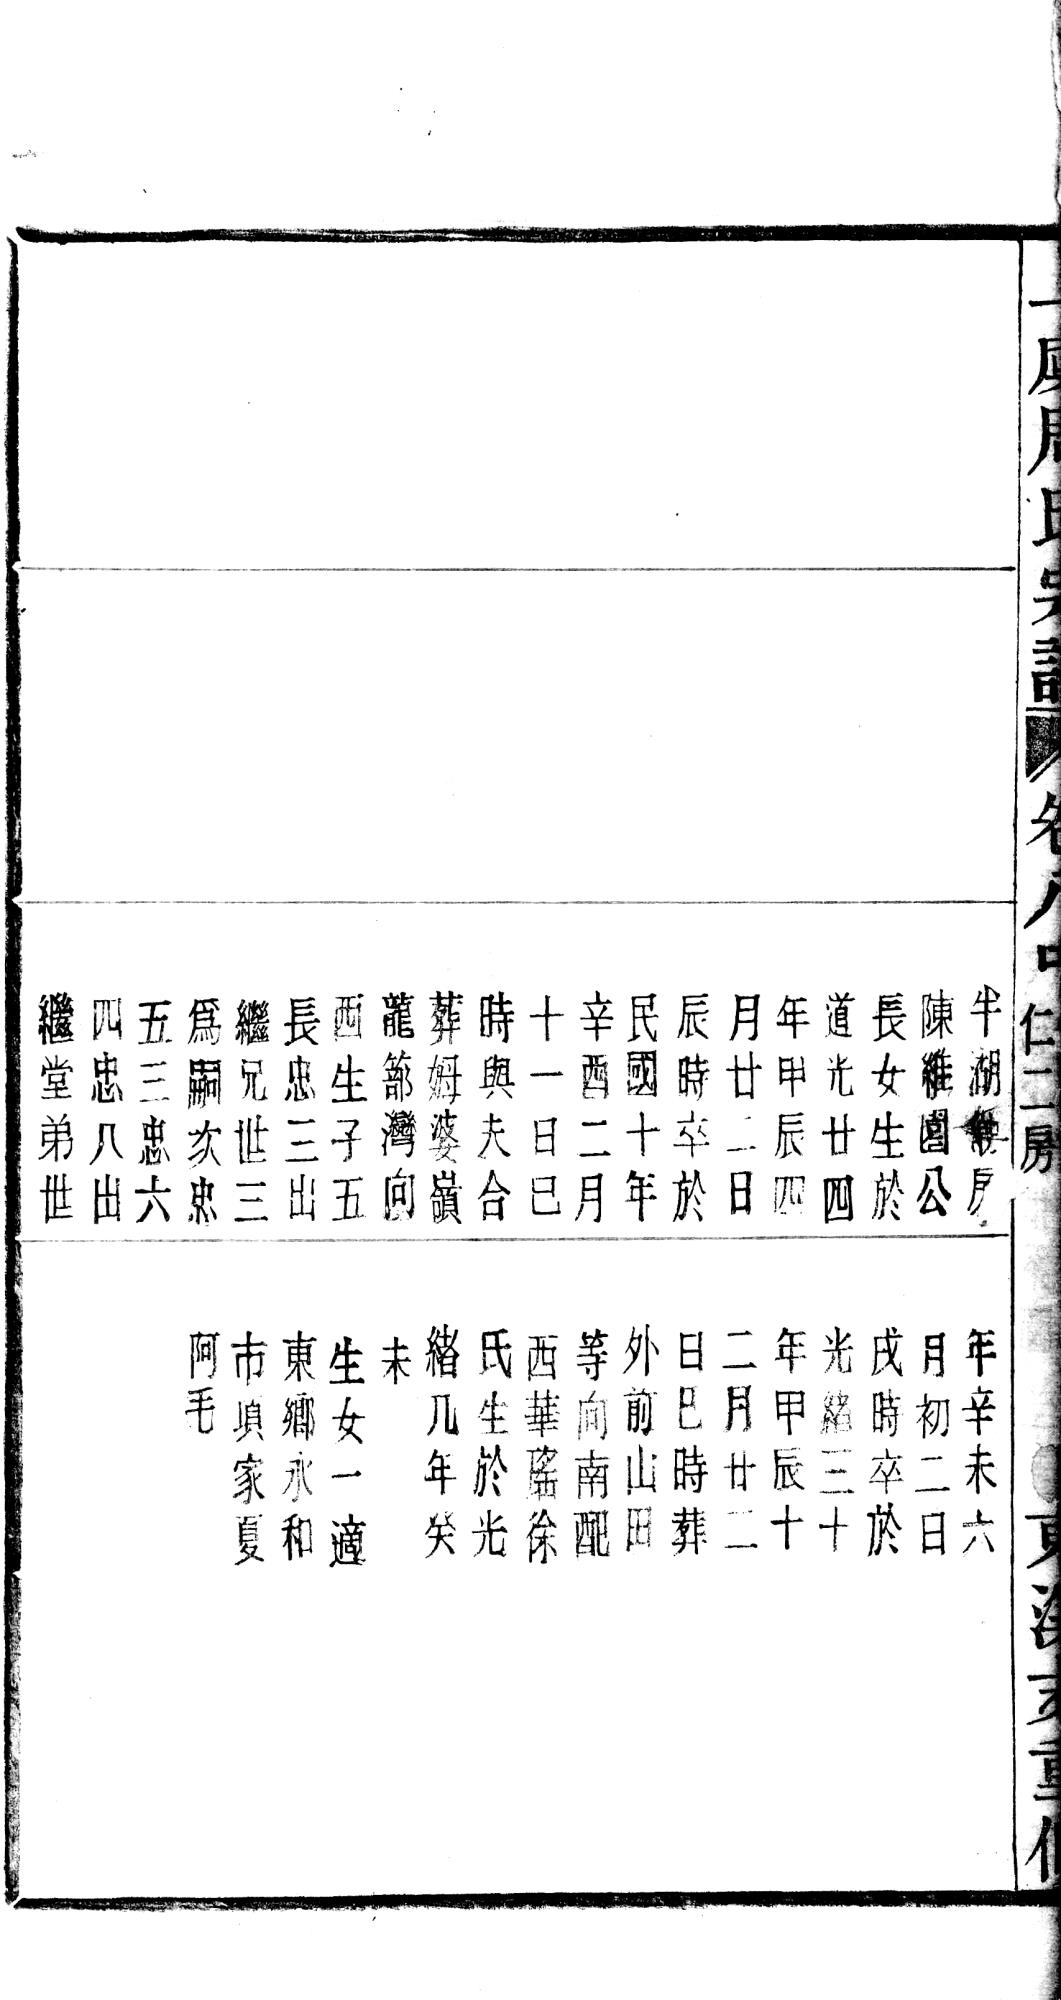 周氏宗譜
卷八中
仁二房
重修
半湖房
陳維園公
長女生於
道光廿四
年甲辰四
月廿二日
辰時卒於
民國十年
辛酉二月
十一日巳
時與夫合
葬姆婆嶺
龍節灣向
西生子五
長忠三出
繼兄世三
爲嗣次忠
五三忠六
四忠八出
繼堂弟世
年辛未六
月初二日
戌時卒於
光緒三十
年甲辰十
二月廿二
日巳時葬
外前山田
等向南配
西華瑤徐
氏生於光
緒九年癸
未
生女一適
東鄉永和
市塤家夏
阿毛